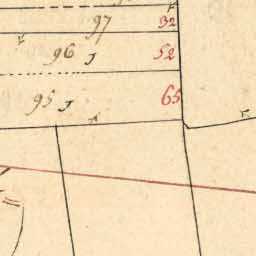 97 32
96 J 52
95 J 65